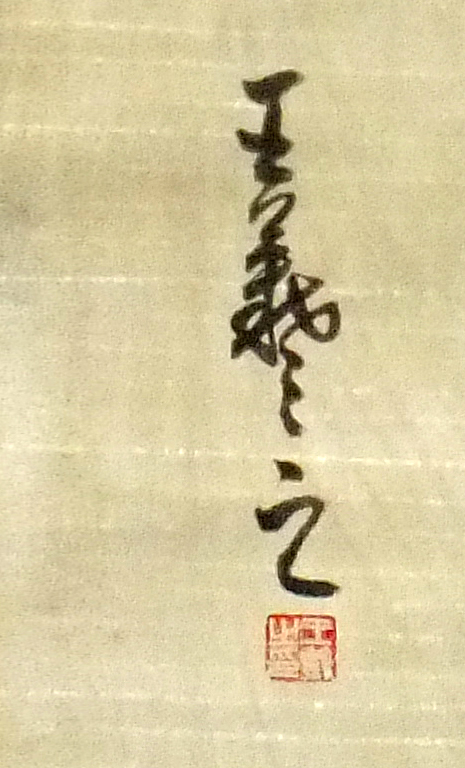 王羲之